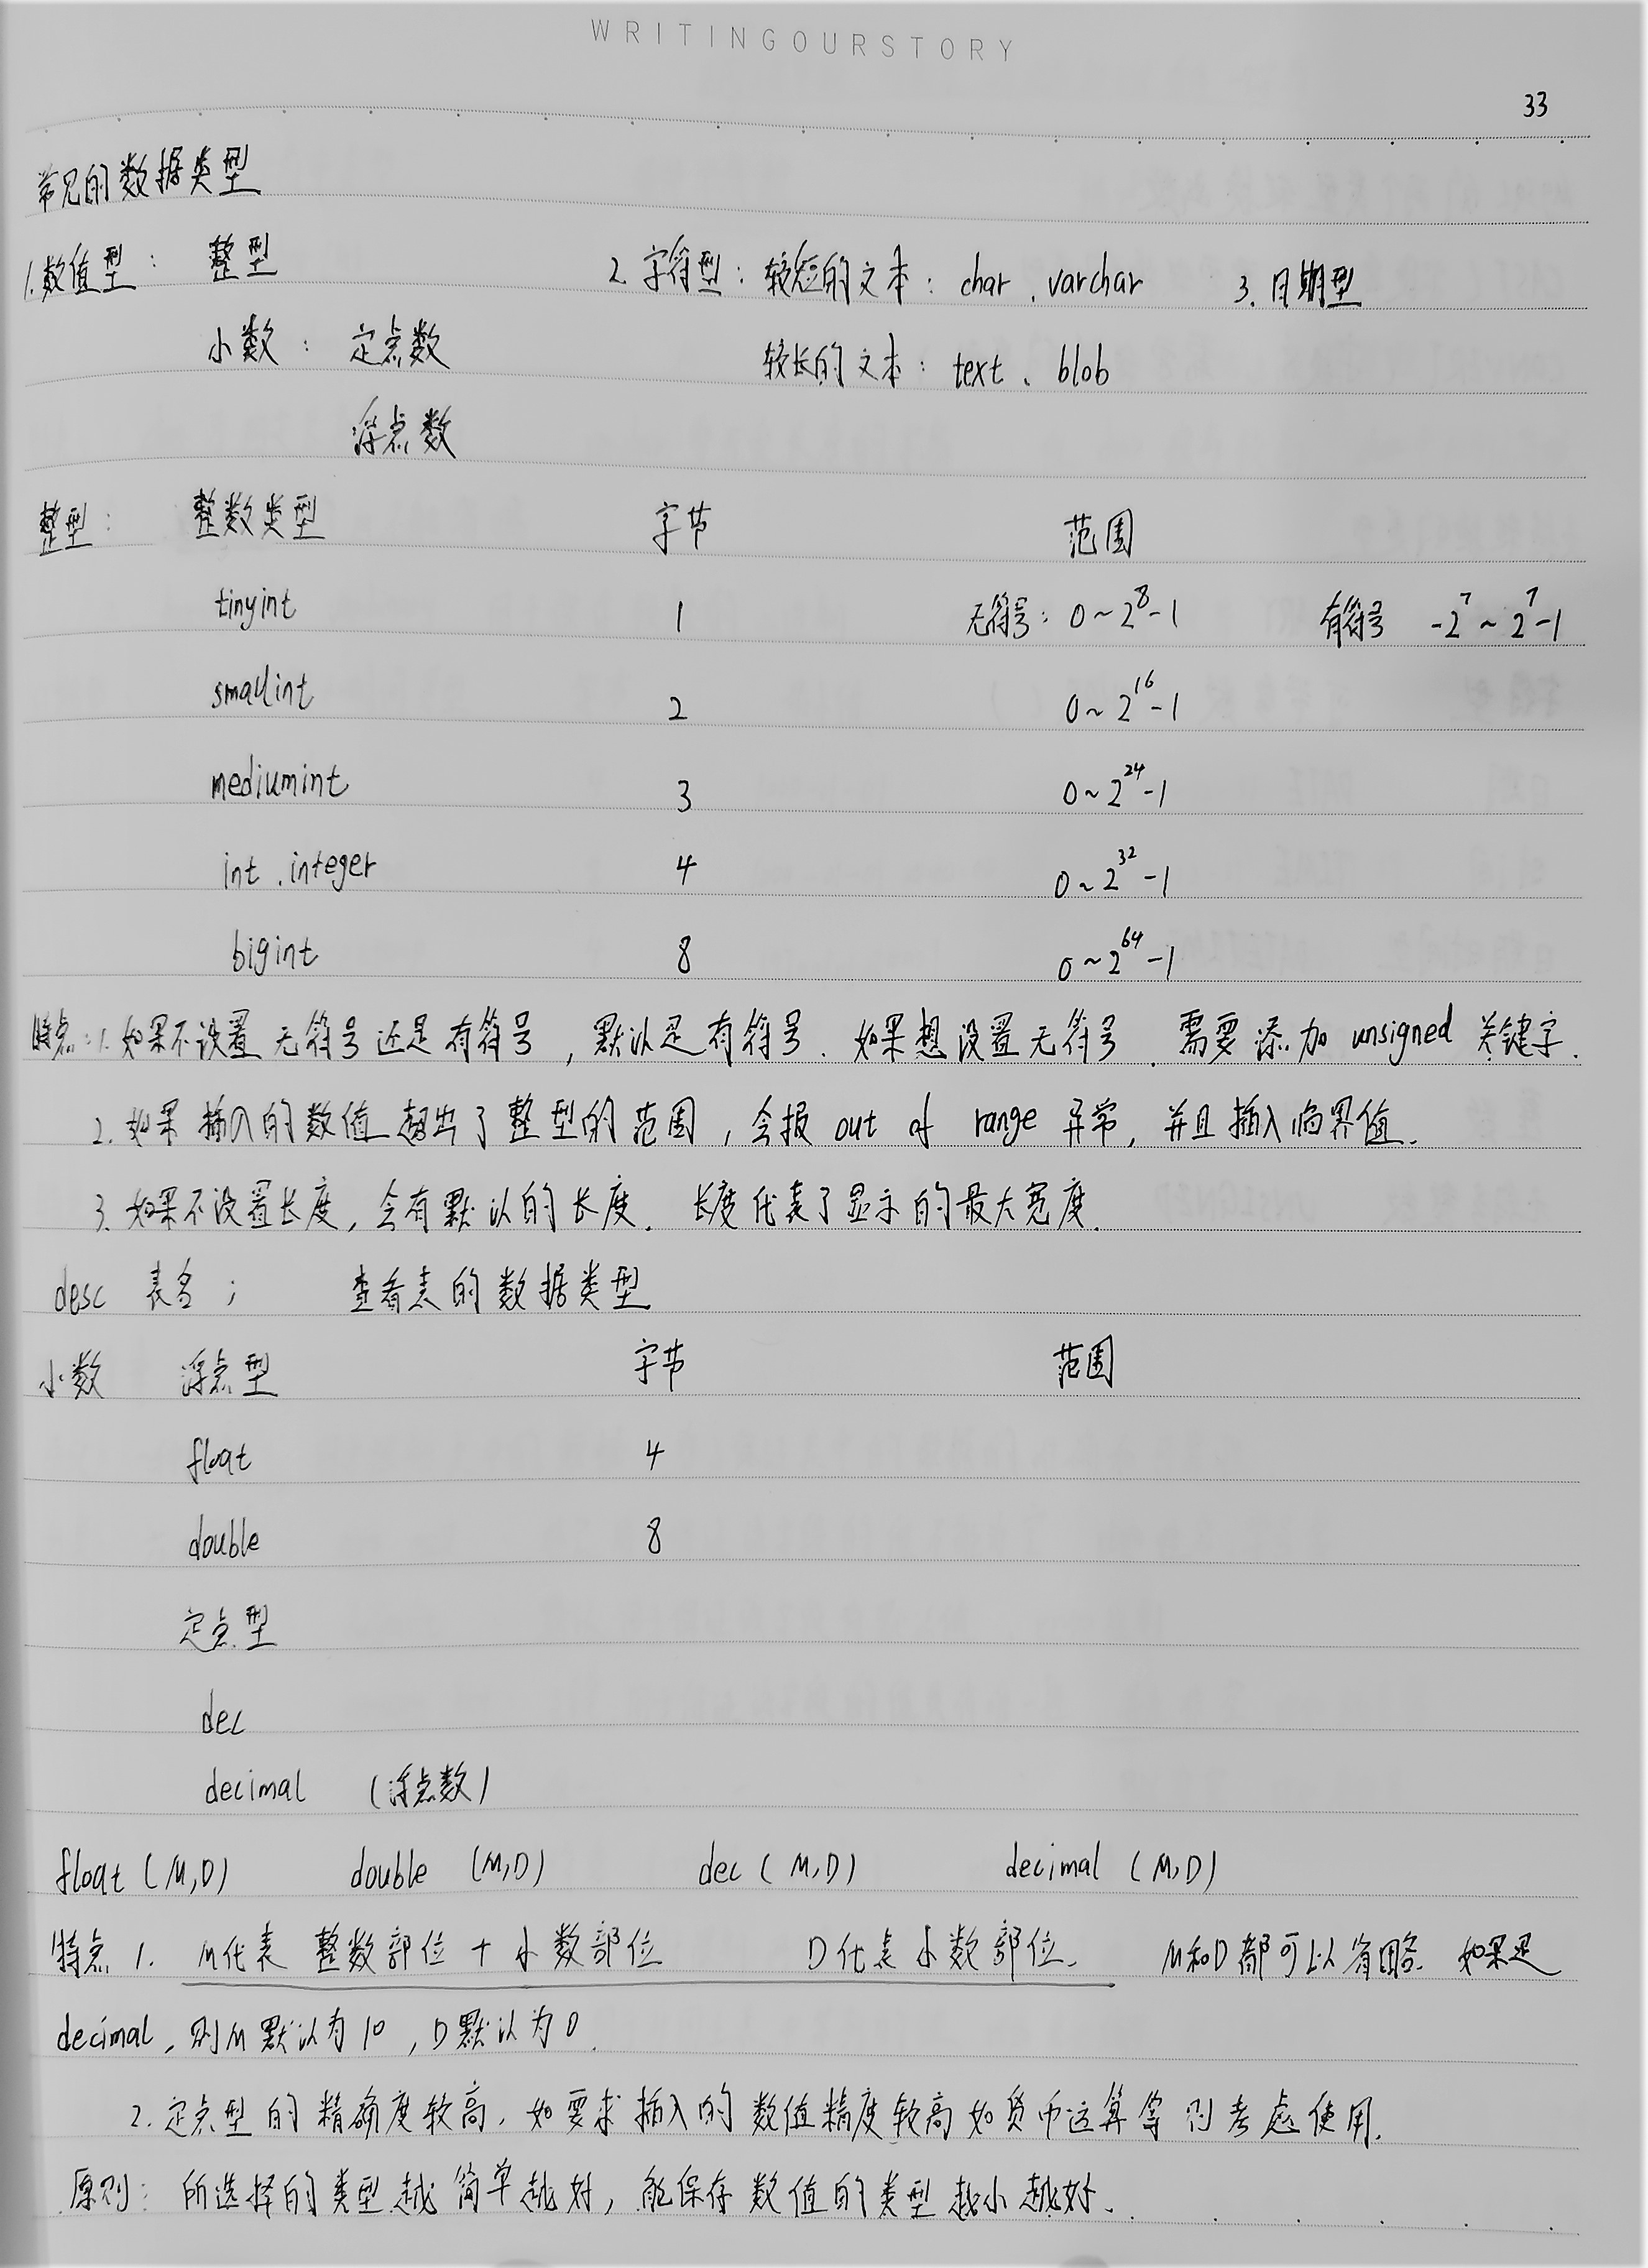 WRITINGOURSTORY
33
常见的数据类型
1.数值型： 整型 2.字符型：较短的文本：char、varchar 3.日期型
小数：定点数 较长的文本：text、blob
浮点数
整型： 整数类型 字节 范围
tinyint 1 无符号：0~2⁸-1 有符号 -2⁷~2⁷-1
smallint 2 0~2¹⁶-1
mediumint 3 0~2²⁴-1
int、integer 4 0~2³²-1
bigint 8 0~2⁶⁴-1
特点：1.如果不设置无符号还是有符号，默认是有符号．如果想设置无符号．需要添加unsigned关键字．
2.如果插入的数值超出了整型的范围，会报out of range异常，并且插入临界值．
3.如果不设置长度，会有默认的长度．长度代表了显示的最大宽度．
desc 表名； 查看表的数据类型
小数 浮点型 字节 范围
float 4
double 8
定点型
dec
decimal （浮点数）
float（M,D） double（M,D） dec（M,D） decimal（M,D）
特点 1. M代表 整数部位+小数部位 D代表小数部位． M和D都可以省略．如果是
decimal，则M默认为10，D默认为0．
2.定点型的精确度较高．如要求插入的数值精度较高如货币运算等则考虑使用．
原则：所选择的类型越简单越好，能保存数值的类型越小越好．